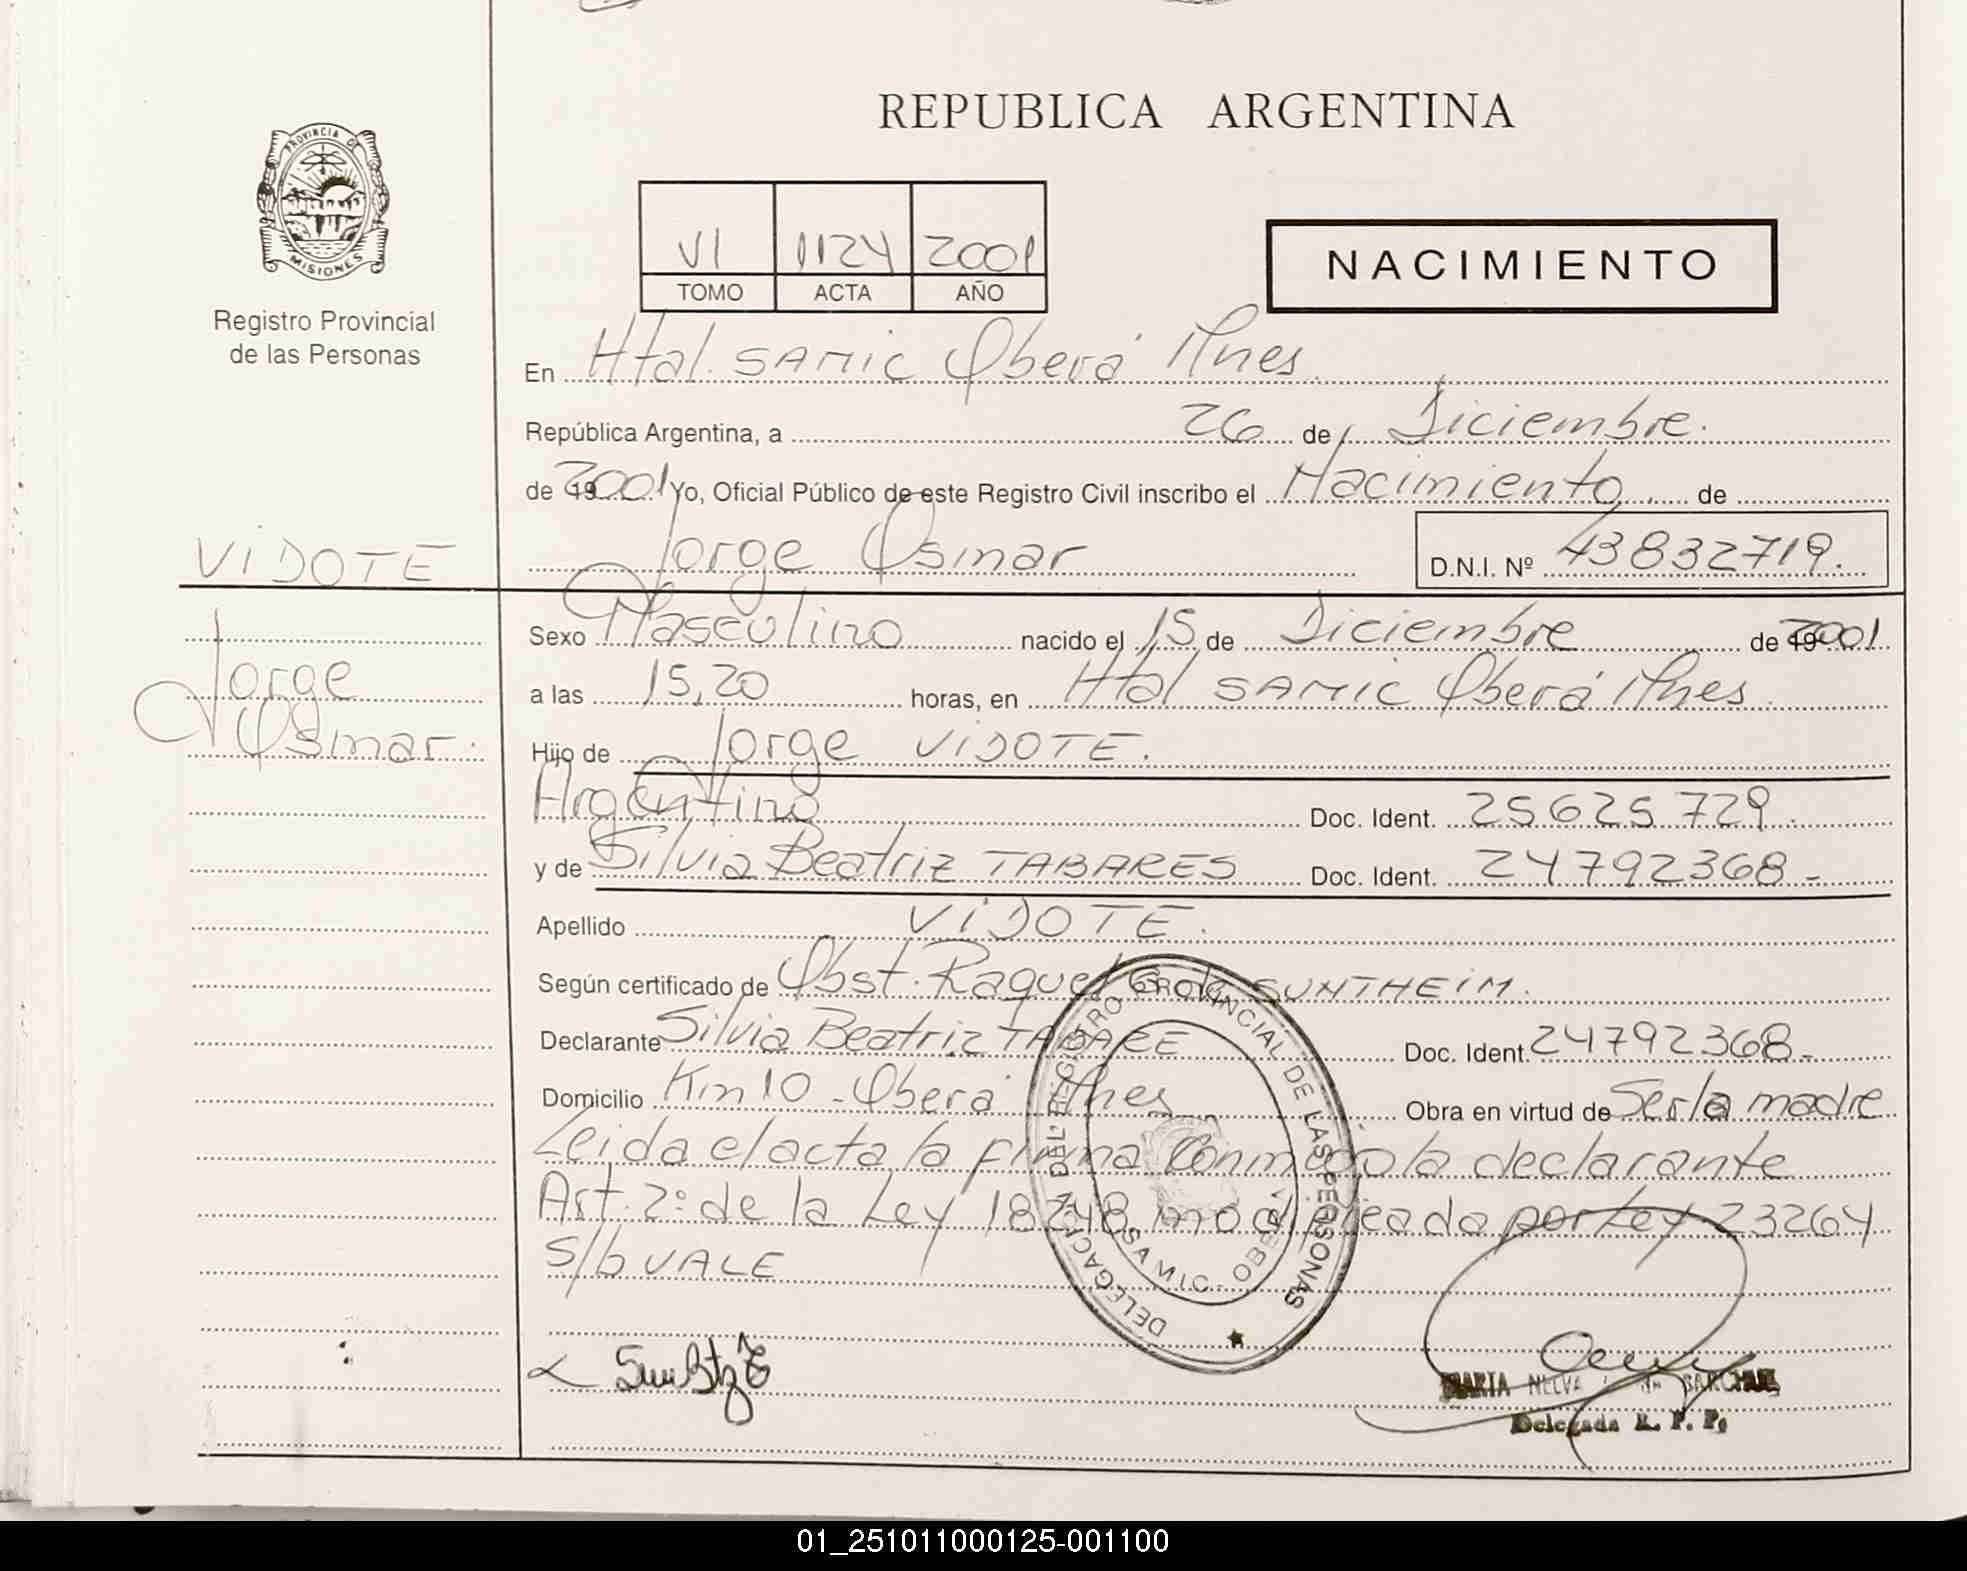 REPUBLICA ARGENTINA
PROVINCIA DE
MISIONES
Registro Provincial
de las Personas
VI 1124 2001
TOMO ACTA AÑO
NACIMIENTO
En Htal. SAMIC Oberá Mnes.
República Argentina, a 26 de Diciembre.
de 2001 Yo, Oficial Público de este Registro Civil inscribo el Nacimiento de
VIDOTE
Jorge Osmar D.N.I. Nº 43832719.
Jorge
Osmar.
Sexo Masculino nacido el 15 de Diciembre de 2001
a las 15,20 horas, en Htal SAMIC Oberá Mnes.
Hijo de Jorge VIDOTE.
Argentino Doc. Ident. 25625729.
y de Silvia Beatriz TABARES Doc. Ident. 24792368-
Apellido VIDOTE.
Según certificado de Obst. Raquel G de SUNTHEIM.
Declarante Silvia Beatriz TABARE Doc. Ident. 24792368-
Domicilio Km 10 - Oberá Mnes Obra en virtud de Ser la madre
Leida el acta la firma Conmigo la declarante
Art. 2: de la Ley 18248 modificada por Ley 23264
S/b VALE
DELEGACION DEL REGISTRO PROVINCIAL DE LAS PERSONAS
SAMIC - OBERA
MARIA
Delegada R. P. P.
01_251011000125-001100